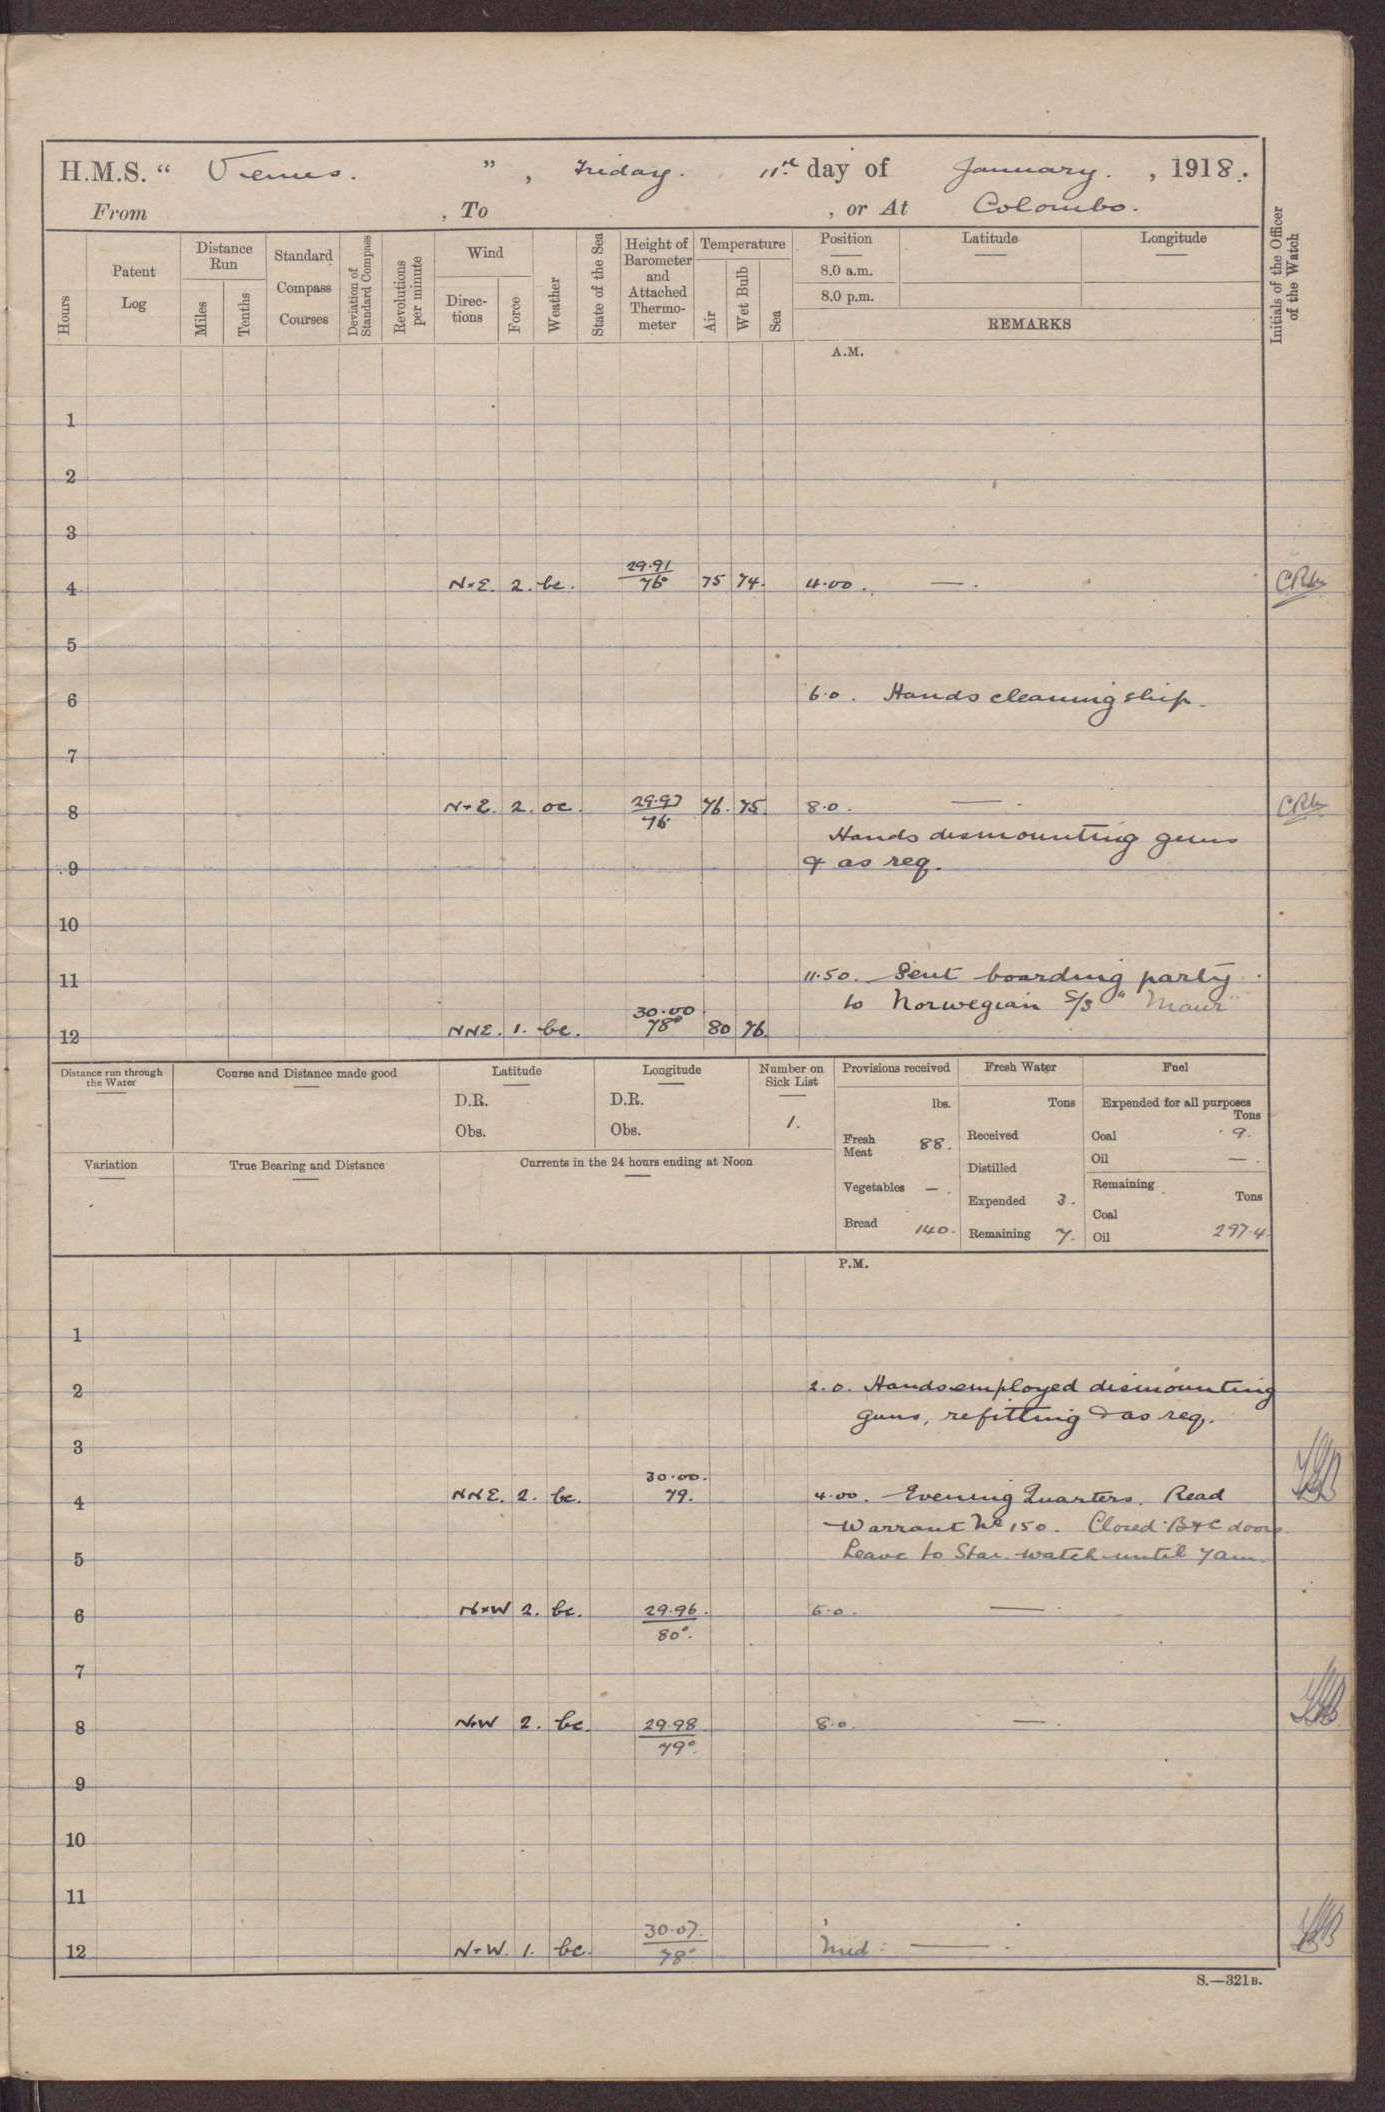 H.M.S. “ Venus. ” , Friday. 11th day of January. , 1918.
From , To , or At Colombo.
Hours
Patent Log
Distance Run
Miles
Tenths
Standard Compass Courses
Deviation of Standard Compass
Revolutions per minute
Wind
Directions
Force
Weather
State of the Sea
Height of Barometer and Attached Thermometer
Temperature
Air
Wet Bulb
Sea
Position
8.0 a.m.
8.0 p.m.
Latitude
Longitude
REMARKS
Initials of the Officer of the Watch
A.M.
1
2
3
4 N×E. 2. bc. 29.91 76° 75 74. 4.00. — .
5
6 6.0. Hands cleaning ship.
7
8 N×E. 2. oc. 29.97 76 76. 75. 8.0. — .
Hands dismounting guns
9 & as req.
10
11 11.50. Sent boarding party
to Norwegian S/S "Maur"
12 NNE. 1. bc. 30.00 78° 80 76.
Distance run through the Water
Course and Distance made good
Latitude
D.R.
Obs.
Longitude
D.R.
Obs.
Number on Sick List
1.
Provisions received
lbs.
Fresh Meat 88.
Vegetables — .
Bread 140.
Fresh Water
Tons
Received
Distilled
Expended 3.
Remaining 7.
Fuel
Expended for all purposes
Tons
Coal 9.
Oil — .
Remaining
Tons
Coal
Oil 297.4
Variation
True Bearing and Distance
Currents in the 24 hours ending at Noon
P.M.
1
2 2.0. Hands employed dismounting
guns, refitting & as req.
3
4 NNE. 2. bc. 30.00. 79. 4.00. Evening Quarters. Read
Warrant No 150. Closed B+C doors.
5 Leave to Star. watch until 7am.
6 N×W 2. bc. 29.96. 80°. 6.0. — .
7
8 N×W 2. bc. 29.98 79°. 8.0. — .
9
10
11
12 N×W. 1. bc. 30.07. 78° Mid: — .
S.—321B.